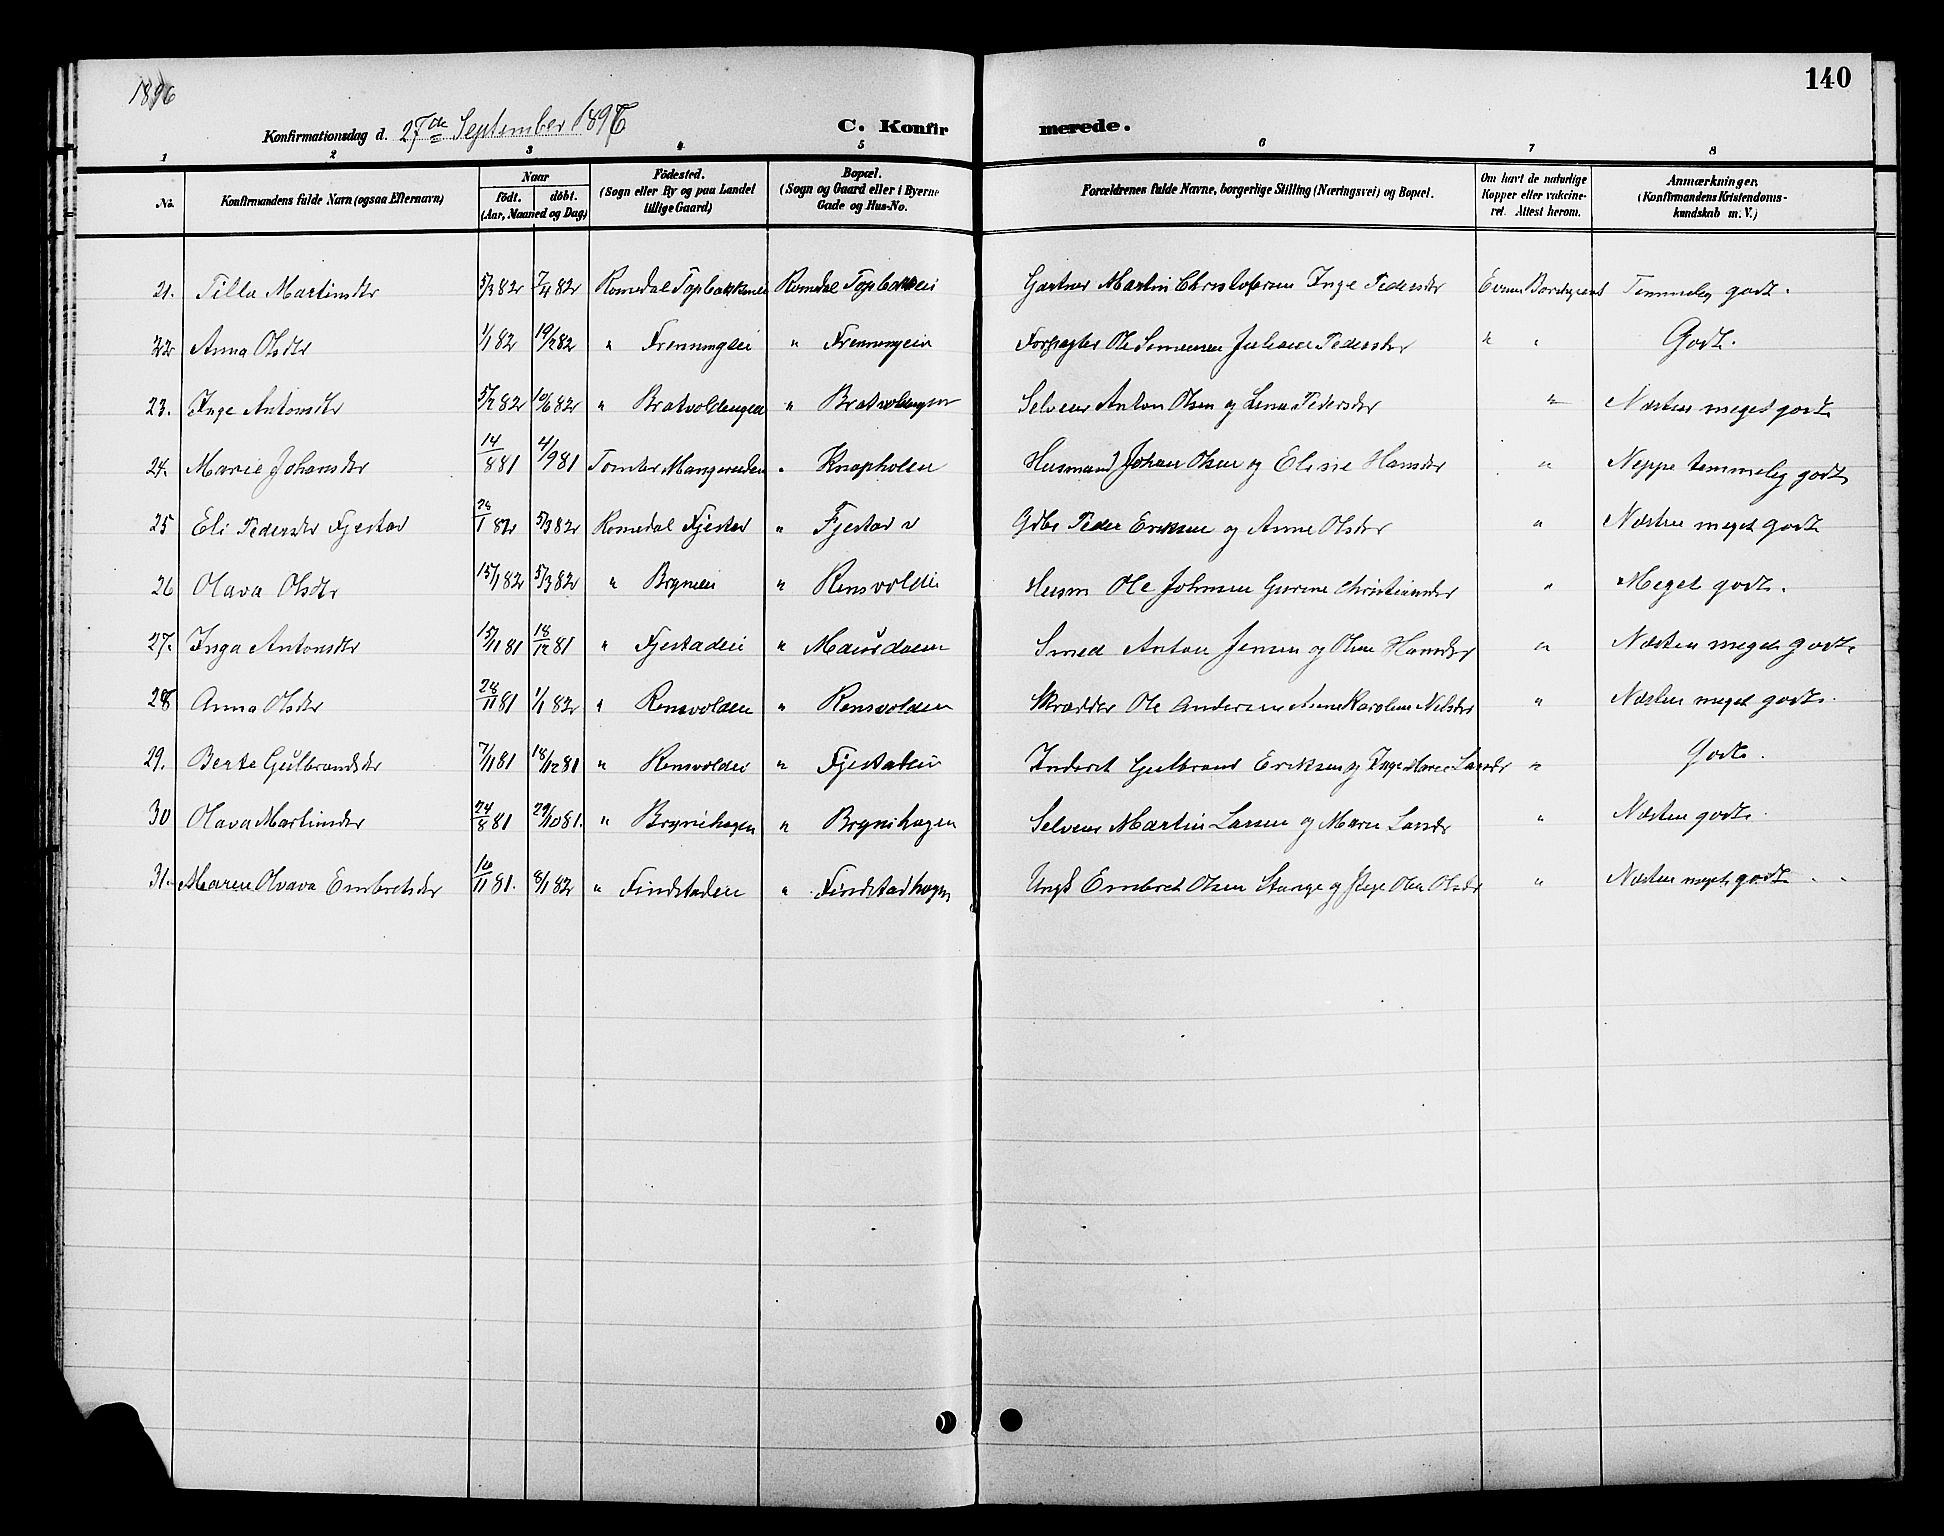 1896
140
Konfirmationsdag d. 27de September 1896
C. Konfirmerede.
1 2 3 4 5 6 7 8
No.
Konfirmandens fulde Navn (ogsaa Efternavn)
Naar
födt. döbt.
(Aar, Maaned og Dag)
Födested.
(Sogn eller By og paa Landet
tillige Gaard)
Bopæl.
(Sogn og Gaard eller i Byerne
Gade og Hus-No.
Forældrenes fulde Navne, borgerlige Stilling (Næringsvei) og Bopæl.
Om havt de naturlige
Kopper eller vakcine-
ret. Attest herom.
Anmærkninger.
(Konfirmandens Kristendoms-
kundskab m. V.)
21. Tilla Martinsdtr 5/3 82 7/4 82 Romedal Topbakkeneie Romedal Topbakeei Gartner Martin Christofersen Inge Pedersdtr Even Bordgveest Temmelig godt.
22 Anna Olsdtr 1/1 82 19/2 82 " Frenningeie " Frenningeie Forpagter Ole Simensen Juliane Pedersdtr " " Godt.
23. Inge Antonsdtr 5/2 82 10/6 82 " Bratvoldengen " Bratvoldengen Selveier Anton Olsen og Lena Pedersdtr " Næsten meget godt
24. Marie Johansdtr 14/8 81 4/9 81 Tomter Mangerudeie " Knapholen Husmand Johan Olsen og Elisie Hansdtr " Neppe temmelig godt
25 Eli Pedersdtr Fjestad 28/1 82 5/3 82 Romedal Fjestad " Fjestad Gdbr Peder Eriksen og Anne Olsdtr " Næsten meget godt
26 Olava Olsdtr 15/1 82 5/3 82 " Bryneie " Rensvoldei Husm Ole Johnsen Gurine Christiansdtr " Meget godt.
27. Inga Antonsdtr 15/11 81 18/12 81 " Fjestadeie " Maursdalen Smed Anton Jensen og Oline Hansdtr " Næsten meget godt
28 Anna Olsdtr 28/11 81 1/1 82 " Rensvoldeie " Rensvoldeie Skrædder Ole Andersen Anne Karoline Nilsdtr " Næsten meget godt.
29. Berte Gulbrandsdtr 7/11 81 18/12 81 " Rensvoldei " Fjestadeie Inderst Gulbrand Eriksen og Inge Marie Larsdr " Godt.
30 Olava Martinsdtr 24/8 81 29/10 81. " Brynihagen " Brynihagen Selveier Martin Larsen og Maren Larsdr " Næsten godt.
31. Maren Olava Embretsdtr 16/11 81. 8/1 82 " Findstadeie " Findstadhagen Ungk Embret Olsen Stange og Pige Olea Olsdtr " Næsten meget godt